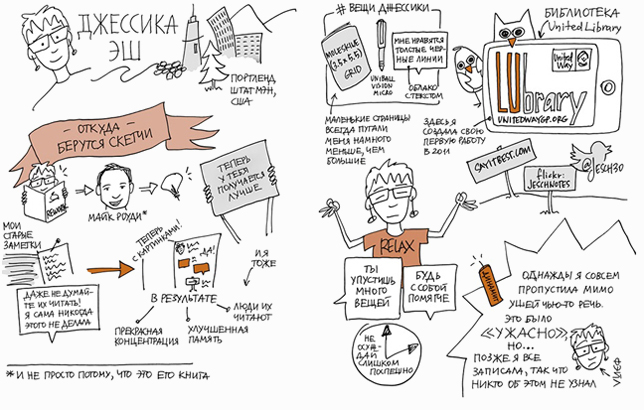 ДЖЕССИКА
ЭШ
ПОРТЛЕНД,
ШТАТ МЭН,
США
– ОТКУДА –
БЕРУТСЯ СКЕТЧИ
МАЙК РОУДИ*
ТЕПЕРЬ
У ТЕБЯ
ПОЛУЧАЕТСЯ
ЛУЧШЕ.
МОИ
СТАРЫЕ
ЗАМЕТКИ
ДАЖЕ НЕ ДУМАЙ-
ТЕ ИХ ЧИТАТЬ!
Я САМА НИКОГДА
ЭТОГО НЕ ДЕЛАЛА
ТЕПЕРЬ
С КАРТИНКАМИ!
ДА!
В РЕЗУЛЬТАТЕ
ПРЕКРАСНАЯ
КОНЦЕНТРАЦИЯ
УЛУЧШЕННАЯ
ПАМЯТЬ
ЛЮДИ ИХ
ЧИТАЮТ
И Я
ТОЖЕ
* И НЕ ПРОСТО ПОТОМУ, ЧТО ЭТО ЕГО КНИГА
# ВЕЩИ ДЖЕССИКИ
MOLESKINE
(3.5 x 5.5)
GRID
UNIBALL
VISION
MICRO
МНЕ НРАВЯТСЯ
ТОЛСТЫЕ ЧЕР-
НЫЕ ЛИНИИ
ОБЛАКО
С ТЕКСТОМ
МАЛЕНЬКИЕ СТРАНИЦЫ
ВСЕГДА ПУГАЛИ
МЕНЯ НАМНОГО
МЕНЬШЕ, ЧЕМ
БОЛЬШИЕ
БИБЛИОТЕКА
United Library
United
Way
LUbrary
UNITEDWAYGP.ORG
ЗДЕСЬ Я
СОЗДАЛА СВОЮ
ПЕРВУЮ РАБОТУ
В 2011
SAYITBEST.COM
flickr:
JESCHNOTES
@JESCH30
RELAX
ТЫ
УПУСТИШЬ
МНОГО
ВЕЩЕЙ
БУДЬ
С СОБОЙ
ПОМЯГЧЕ
НЕ
ОСУЖ-
ДАЙ
СЛИШКОМ
ПОСПЕШНО
ДИНАМИТ
ОДНАЖДЫ Я СОВСЕМ
ПРОПУСТИЛА МИМО
УШЕЙ ЧЬЮ-ТО РЕЧЬ.
ЭТО БЫЛО
«УЖАСНО»
НО...
ПОЗЖЕ Я ВСЕ
ЗАПИСАЛА, ТАК ЧТО
НИКТО ОБ ЭТОМ НЕ УЗНАЛ